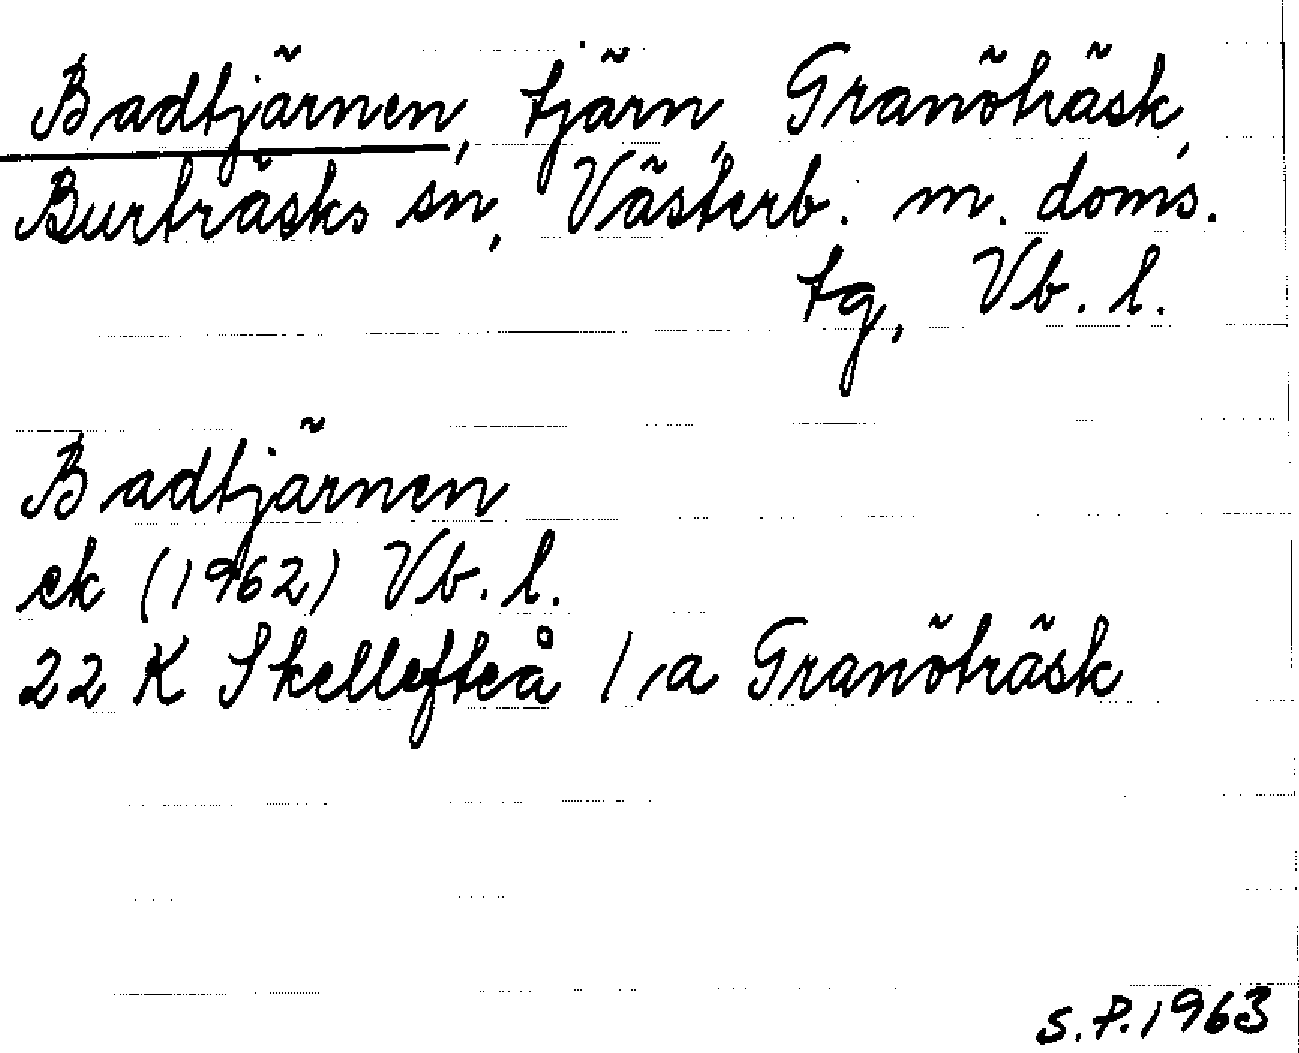 Badtjärnen, tjärn, Granöträsk,
Burträsks sn, Västerb. m. doms.
tg, Vb. l.
Badtjärnen
ek (1962) Vb. l.
22 K Skellefteå 1, a Granöträsk
S.P. 1963